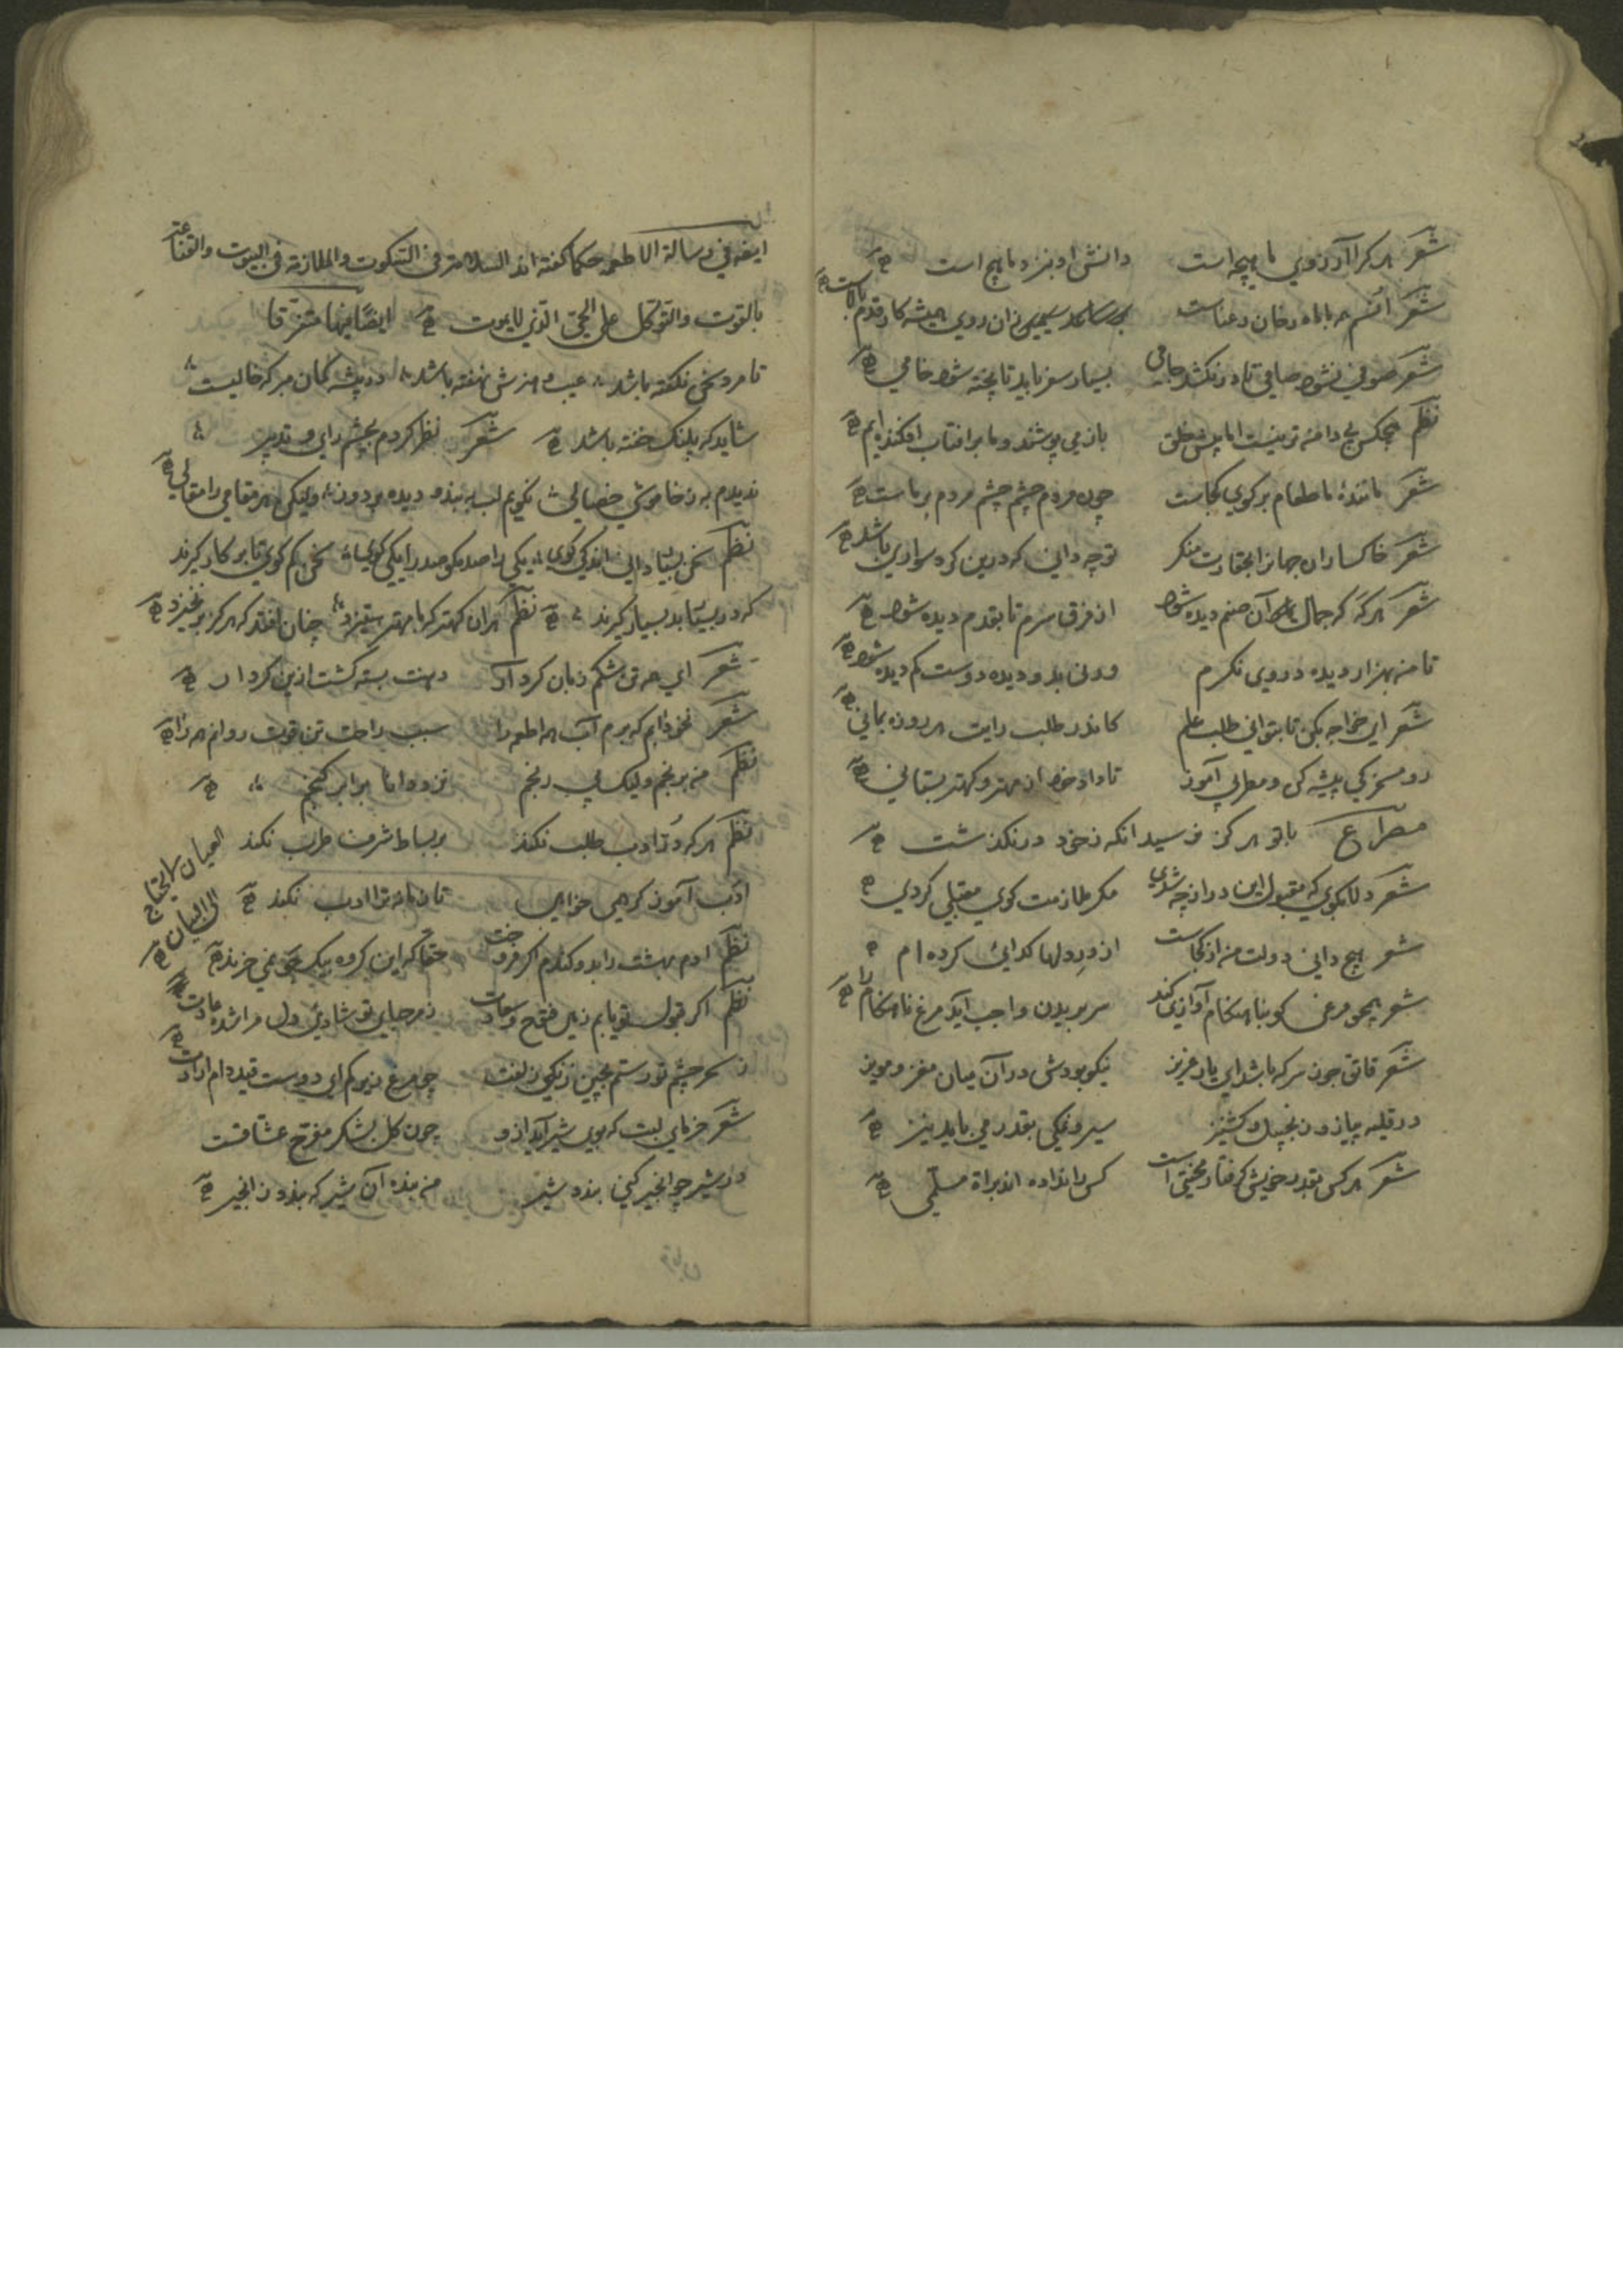 شعر هر کرا آرزوی ماهیچه است دانش او بنزد ما هیچ است
شعر انسم همه با ماه رخان رعناست زان روی همیشه کار وقدم بالاست
شعر صوفی نشود صافی تا در نکشد جامی بسیار سفر باید تا پخته شود خامی
نظم هیچکس بی دامنه تر نیست اما پیش خلق باز می پوشند و ما بر افتاب افکنده ایم
شعر ماننده با طعام بر کوی کجاست چون مردم چشم چشم مردم بر ماست
شعر خاکساران جهانرا بحقارت منکر تو چه دانی که درین کرد سواری باشد
شعر هر که که جمال آن صنم دیده شود از فرق سرم تا بقدم دیده شود
تا من بهزار دیده در وی نکرم ورنی بدو دیده دوست کم دیده شود
شعر ای خواجه مکن تا بتوانی طلب علم کاندر طلب راتب هر روزه بمانی
رو مسخرکی پیشه کن و مطربی آموز تا داد خود از مهتر و کهتر بستانی
مصراع باتو هرکز نرسید انکه زخود درنکذشت
شعر دلا بکوی که مقبول این در از چه شدی مکر ملازمت کوی مقبلی کردی
شعر هیچ دانی دولت من از کجاست از در دلها کدائی کرده ام
شعر همچو مرغی کو بناهنکام آوازی کند سر بریدن واجب اید مرغ ناهنکام را
شعر قاتق چون سرکه باشد ای یار عزیز نیکو بودش در آن میان مغز و مویز
در قلیه پیاز و زنجبیل و کشنیز سیر و نمکی بقدر می باید نیز
شعر هر کس بقدر خویش کرفتار محنتی است کس را نداده اند براة مسلمی
ایضه فی رسالة الاطعمه حکما کفته اند السلامة فی السکوت والملازمة فی البیوت والقناعة
بالقوت والتوکل علی الحی الذی لایموت ایضا منها متفرقا
تا مرد سخن نکفته باشد عیب و هنرش نهفته باشد در پیشه کمان مبر که خالیست
شاید که پلنک خفته باشد شعر نظر کردم بچشم رای و تدبیر
ندیدم به ز خاموشی خصالی نکویم لب ببند و دیده بر دوز ولیکن هر مقامی را مقالی
نظم سخن بسیار دانی اندکی کوی یکی را صد مکو صد را یکی کوی سخن کم کوی تا بر کار کیرند
که در بسیار بد بسیار کیرند نظم هران کهتر که با مهتر ستیزد چنان افتد که هرکز برنخیزد
شعر ای همه تن شکم زبان کرد آر دهنت بسته کشت ازین کردار
شعر نخواهم که برم آب همه اطعمه را سبب راحت تن قوت روانم همه را
نظم من برنجم ولیک بی رنجم نزد دانا برابر کنجم
نظم هر که در تو ادب طلب نکند بر بساط شرف طرب نکند
ادب آموز کر همی خواهی تا زمانه ترا ادب نکند
العیان لایحتاج
الی البیان
نظم ادم بهشت را بدو کندم اکر فروخت حقا که این کروه بیک جو نمی خرند
نظم اکر قبول تو یابم زهی فتوح و سعادت
ز سحر چشم تو رستم بچین زنکی زلفت چو مرغ زیرکم ای دوست قید دام ارادت
شعر فرمای لبت که بوی شیر آید ازو چون کل بشکر مفرح عشاقست
در شیر چو انجیر کنی بندد شیر من بنده آن شیر که بندد زانجیر